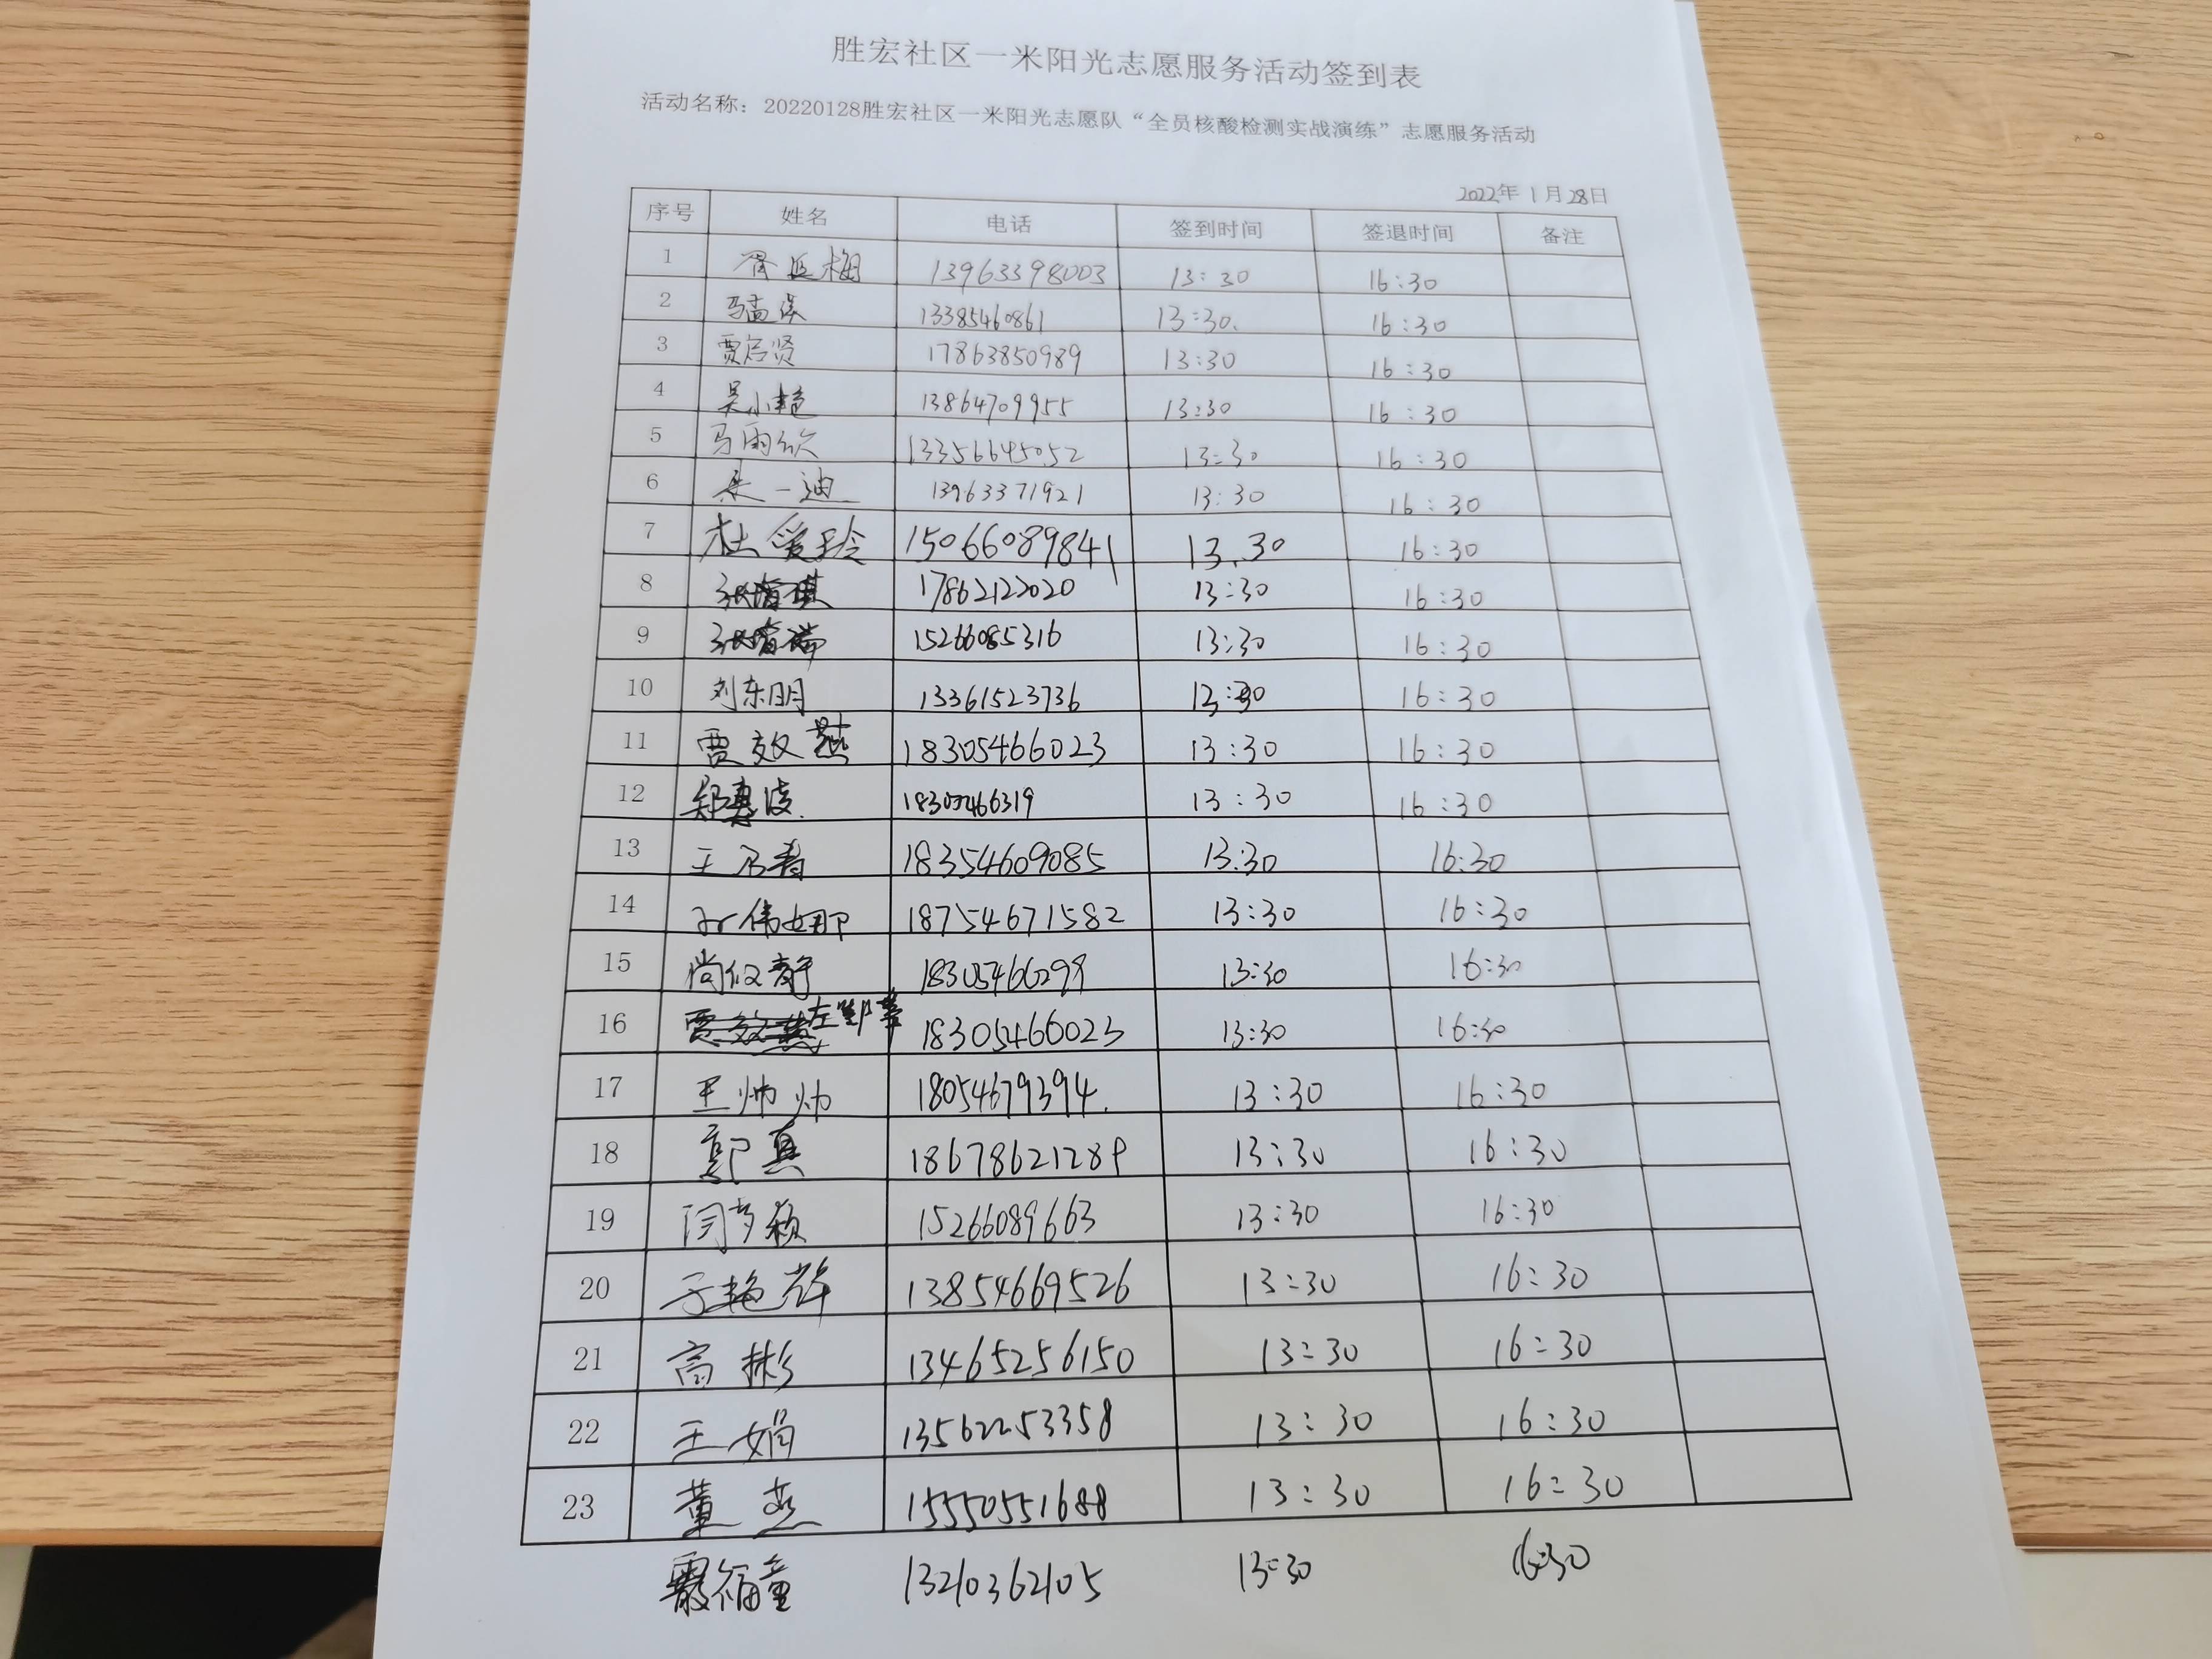 胜宏社区一米阳光志愿服务活动签到表
活动名称：20220128胜宏社区一米阳光志愿队“全员核酸检测实战演练”志愿服务活动
2022年 1月28日
序号 姓名 电话 签到时间 签退时间 备注
1 13963398003 13:30 16:30
2 马孟侯 13385460861 13:30. 16:30
3 贾启贤 17863850989 13:30 16:30
4 吴小艳 13864709955 13:30 16:30
5 马雨欣 13356645052 13:30 16:30
6 一迪 13963371921 13:30 16:30
7 杜爱玲 15066089841 13.30 16:30
8 张增琪 17862122020 13:30 16:30
9 15266085316 13:30 16:30
10 刘东明 13361523736 13:30 16:30
11 贾效燕 18305466023 13:30 16:30
12 郑惠 13:30 16:30
13 王乃 18354609085 13:30 16:30
14 孙伟娜 18754671582 13:30 16:30
15 尚仪静 18305466298 13:30 16:30
16 贾效燕 18305466023 13:30 16:30
17 王帅帅 18054679394. 13:30 16:30
18 郭真 18678621289 13:30 16:30
19 闫梦颖 15266089663 13:30 16:30
20 于艳辉 13854669526 13:30 16:30
21 高彬 13465256150 13:30 16:30
22 王娟 13562253358 13:30 16:30
23 董燕 15550551688 13:30 16:30
福童 13210362105 13:30 16:30